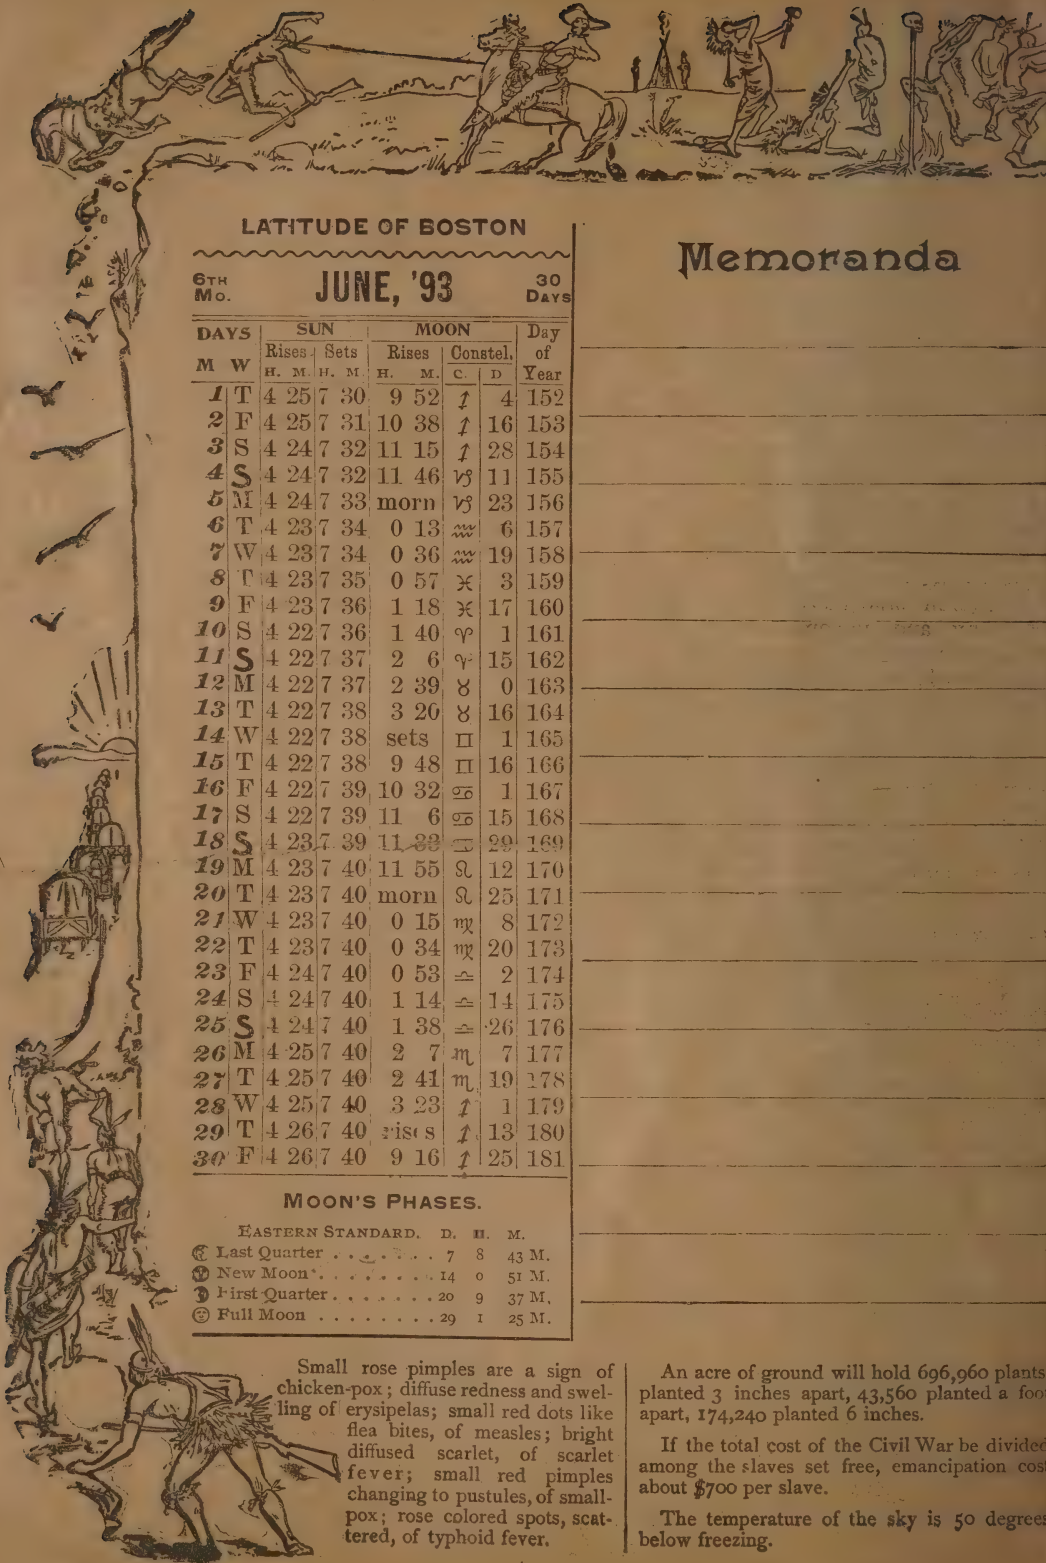 LATITUDE OF BOSTON
6TH MO. JUNE, '93 30 DAYS
DAYS SUN MOON Day
Rises Sets Rises Constel. of
M W H. M. H. M. H. M. C. D Year
1 T 4 25 7 30 9 52 ♐ 4 152
2 F 4 25 7 31 10 38 ♐ 16 153
3 S 4 24 7 32 11 15 ♐ 28 154
4 S 4 24 7 32 11 46 ♑ 11 155
5 M 4 24 7 33 morn ♑ 23 156
6 T 4 23 7 34 0 13 ♒ 6 157
7 W 4 23 7 34 0 36 ♒ 19 158
8 T 4 23 7 35 0 57 ♓ 3 159
9 F 4 23 7 36 1 18 ♓ 17 160
10 S 4 22 7 36 1 40 ♈ 1 161
11 S 4 22 7 37 2 6 ♈ 15 162
12 M 4 22 7 37 2 39 ♉ 0 163
13 T 4 22 7 38 3 20 ♉ 16 164
14 W 4 22 7 38 sets ♊ 1 165
15 T 4 22 7 38 9 48 ♊ 16 166
16 F 4 22 7 39 10 32 ♋ 1 167
17 S 4 22 7 39 11 6 ♋ 15 168
18 S 4 23 7 39 11 33 ♋ 29 169
19 M 4 23 7 40 11 55 ♌ 12 170
20 T 4 23 7 40 morn ♌ 25 171
21 W 4 23 7 40 0 15 ♍ 8 172
22 T 4 23 7 40 0 34 ♍ 20 173
23 F 4 24 7 40 0 53 ♎ 2 174
24 S 4 24 7 40 1 14 ♎ 14 175
25 S 4 24 7 40 1 38 ♎ 26 176
26 M 4 25 7 40 2 7 ♏ 7 177
27 T 4 25 7 40 2 41 ♏ 19 178
28 W 4 25 7 40 3 23 ♐ 1 179
29 T 4 26 7 40 rises ♐ 13 180
30 F 4 26 7 40 9 16 ♐ 25 181
MOON'S PHASES.
EASTERN STANDARD. D. H. M.
Last Quarter . . . . . . . 7 8 43 M.
New Moon . . . . . . . . 14 0 51 M.
First Quarter . . . . . . . 20 9 37 M.
Full Moon . . . . . . . . 29 1 25 M.
Memoranda
Small rose pimples are a sign of
chicken-pox; diffuse redness and swel-
ling of erysipelas; small red dots like
flea bites, of measles; bright
diffused scarlet, of scarlet
fever; small red pimples
changing to pustules, of small-
pox; rose colored spots, scat-
tered, of typhoid fever.
An acre of ground will hold 696,960 plants
planted 3 inches apart, 43,560 planted a foot
apart, 174,240 planted 6 inches.
If the total cost of the Civil War be divided
among the slaves set free, emancipation cost
about $700 per slave.
The temperature of the sky is 50 degrees
below freezing.